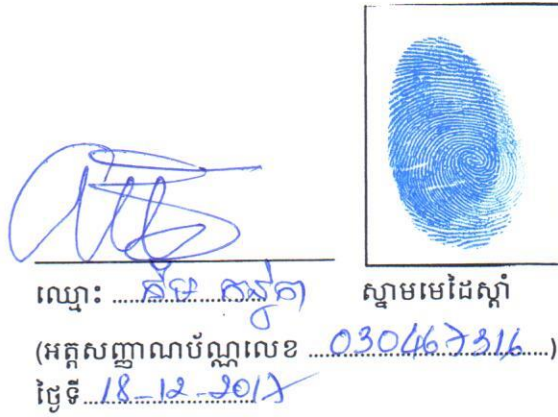 ឈ្មោះ ..... គឹម ..........
ស្នាមមេដៃស្តាំ
(អត្តសញ្ញាណប័ណ្ណលេខ ...030467316......)
ថ្ងៃទី...18-12-2017